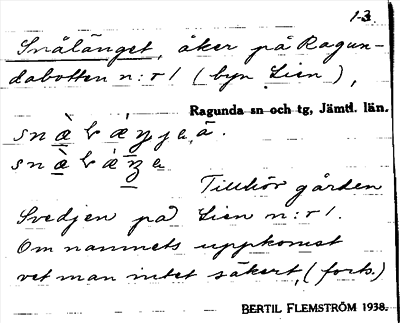 1-3.
Snålänget, åker på Ragun-
dabotten n:r 1 (byn Lien),
Ragunda sn och tg, Jämtl. län.
Tillhör gården
Svedjen på Lien n:r 1.
Om namnets uppkomst
vet man intet säkert, (forts.)
BERTIL FLEMSTRÖM 1938.